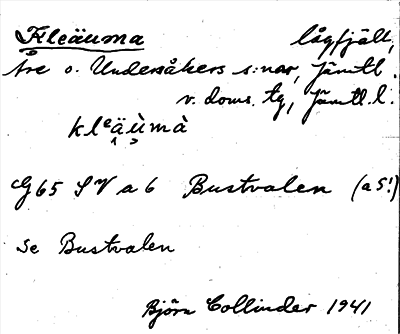 Kleäuma lågfjäll,
Åre o. Undersåkers s:nar, Jämtl.
v. doms. tg, Jämtl. l.
kleäùmà
G65 SV a 6 Bustvalen (a 5!)
Se Bustvalen
Björn Collinder 1941